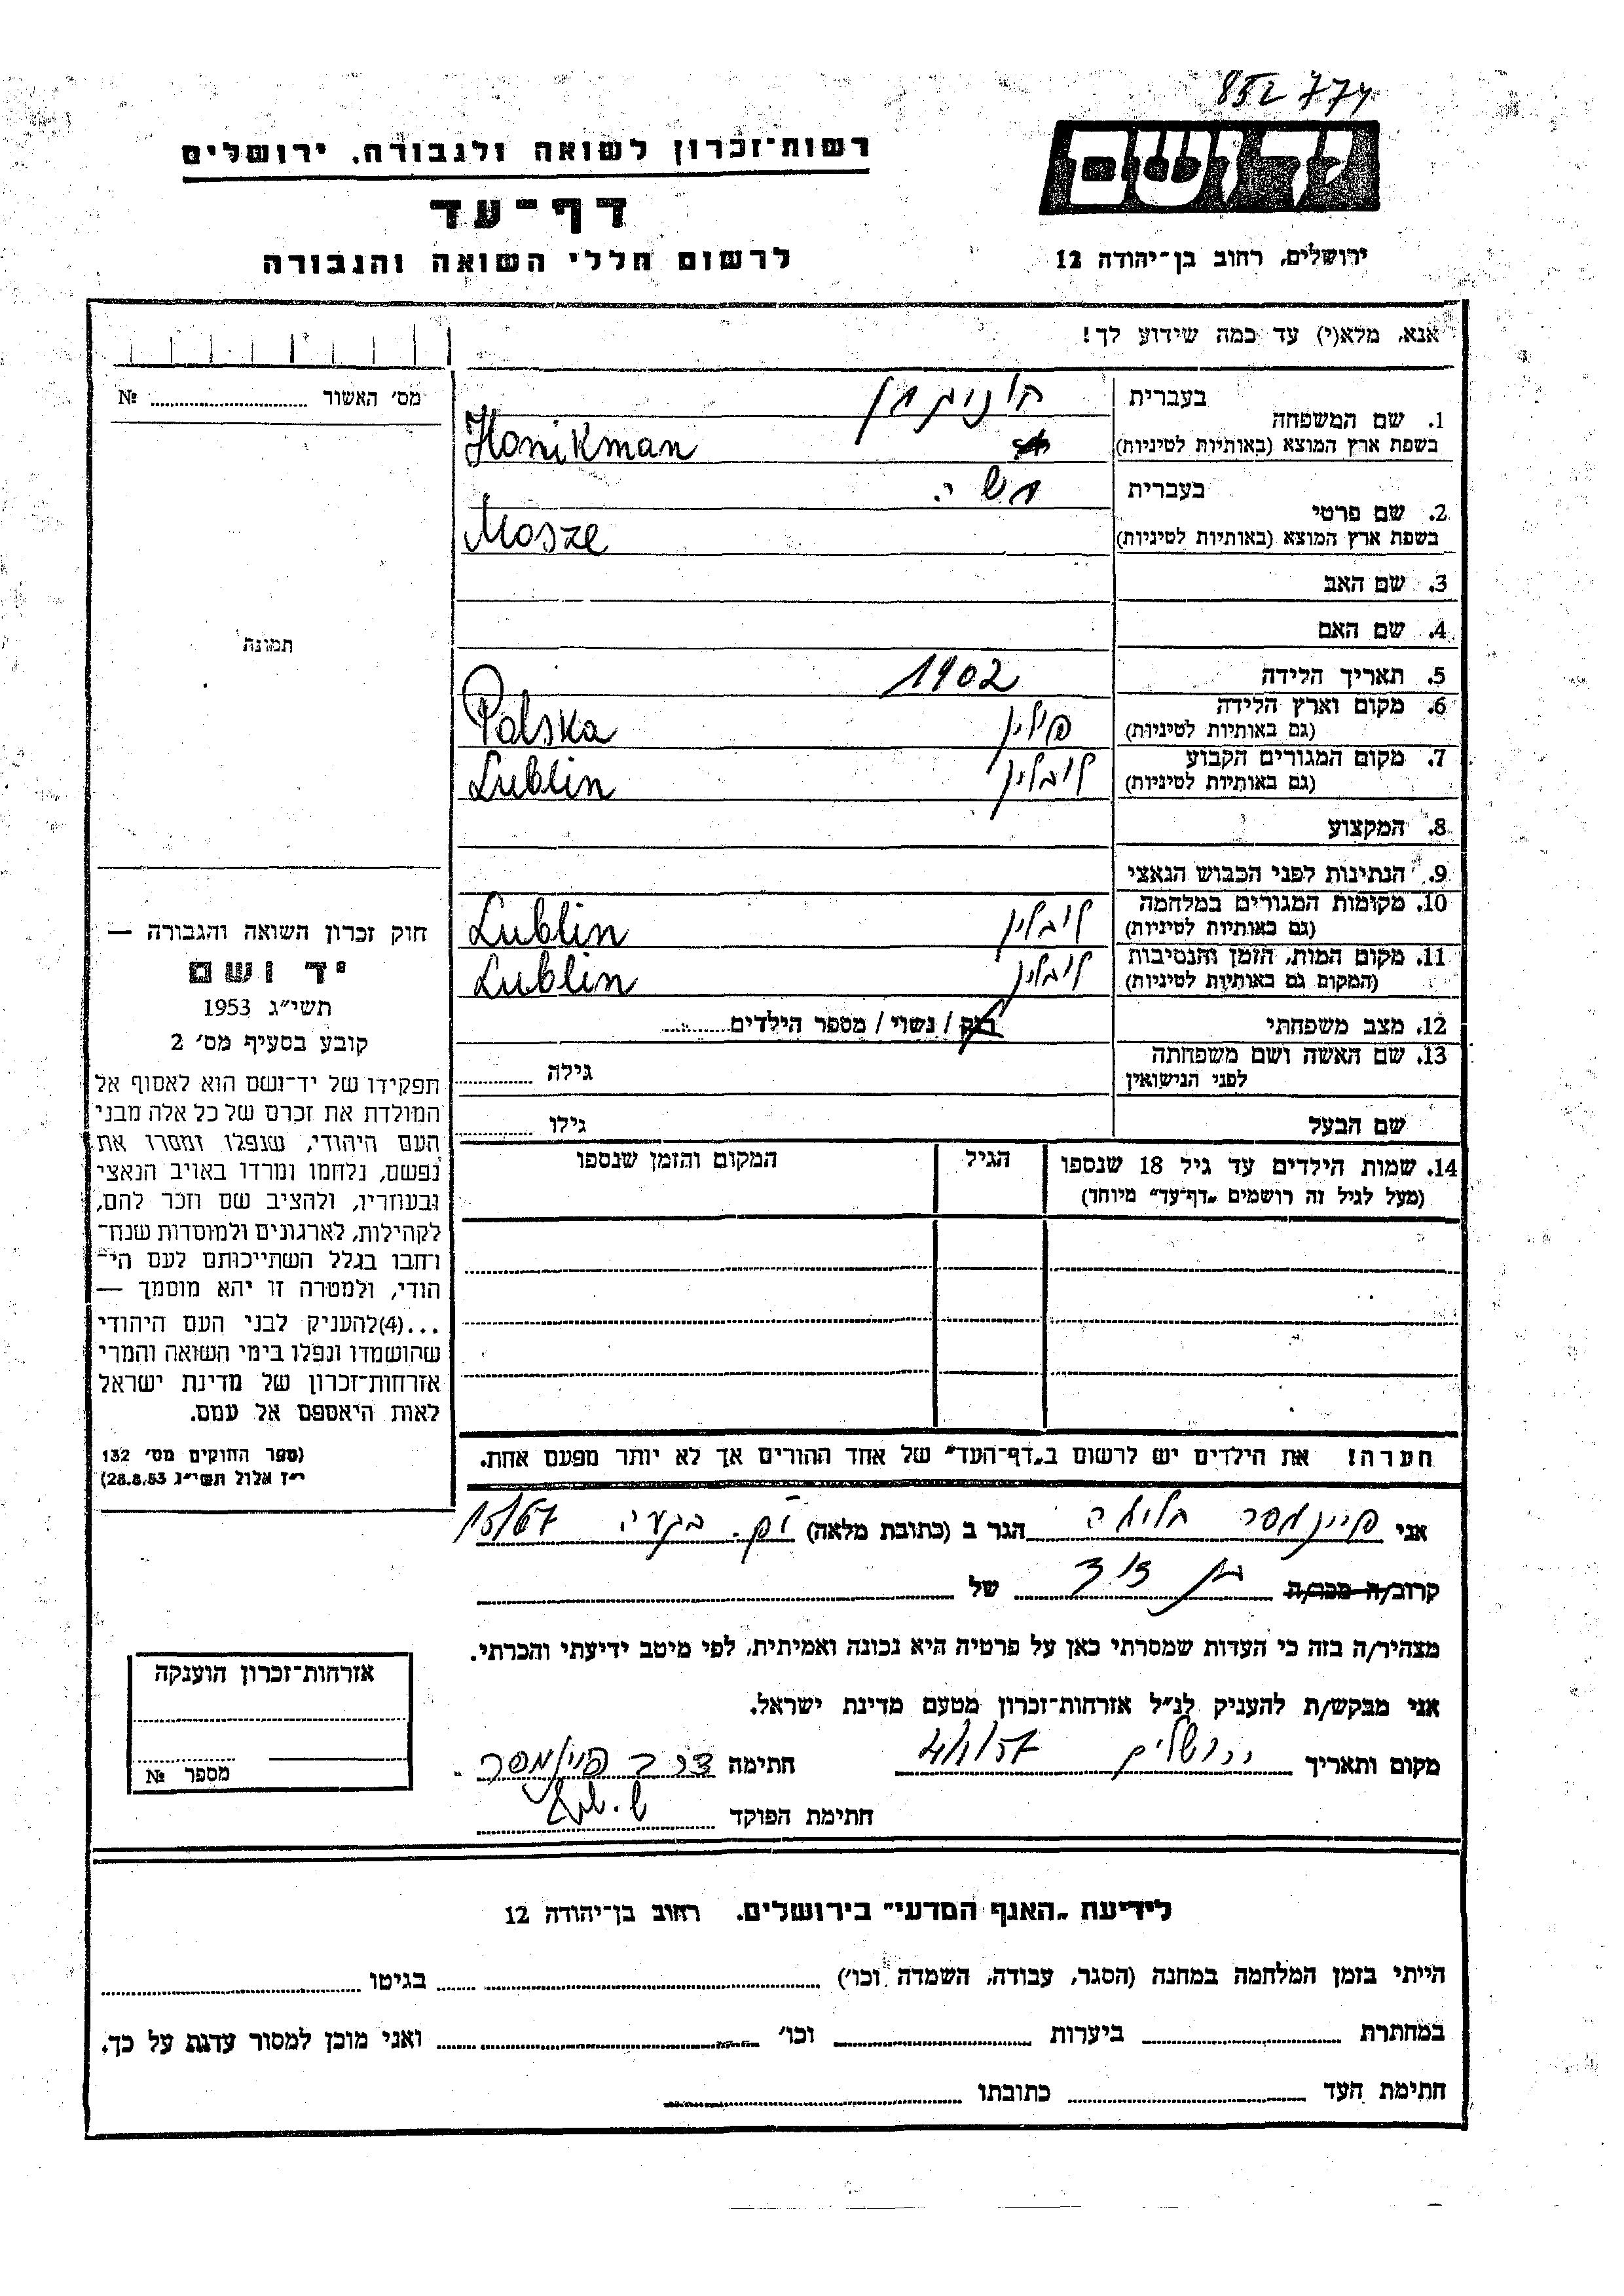 852 774
יד ושם
ירושלים, רחוב בן־יהודה 12
רשות־זכרון לשואה ולגבורה, ירושלים
דף־עד
לרשום חללי השואה והגבורה
אנא, מלא(י) עד כמה שידוע לך!
מס׳ האשור № ............
1. שם המשפחה
בעברית הוניקמן
בשפת ארץ המוצא (באותיות לטיניות) Honikman
2. שם פרטי
בעברית
בשפת ארץ המוצא (באותיות לטיניות) Mosze
3. שם האב
4. שם האם
5. תאריך הלידה 1902
6. מקום וארץ הלידה
(גם באותיות לטיניות) פולין Polska
7. מקום המגורים הקבוע
(גם באותיות לטיניות) לובלין Lublin
8. המקצוע
9. הנתינות לפני הכבוש הנאצי
10. מקומות המגורים במלחמה
(גם באותיות לטיניות) לובלין Lublin
11. מקום המות, הזמן והנסיבות
(המקום גם באותיות לטיניות) לובלין Lublin
12. מצב משפחתי רוק / נשוי / מספר הילדים............
13. שם האשה ושם משפחתה
לפני הנישואין גילה ............
שם הבעל גילו ............
14. שמות הילדים עד גיל 18 שנספו הגיל המקום והזמן שנספו
(מעל לגיל זה רושמים „דף־עד״ מיוחד)
הערה! את הילדים יש לרשום ב„דף־העד״ של אחד ההורים אך לא יותר מפעם אחת.
תמונה
חוק זכרון השואה והגבורה —
יד ושם
תשי״ג 1953
קובע בסעיף מס׳ 2
תפקידו של יד־ושם הוא לאסוף אל
המולדת את זכרם של כל אלה מבני
העם היהודי, שנפלו ומסרו את
נפשם, נלחמו ומרדו באויב הנאצי
ובעוזריו, ולהציב שם וזכר להם,
לקהילות, לארגונים ולמוסדות שנח־
רחבו בגלל השתייכותם לעם הי־
הודי, ולמטרה זו יהא מוסמך —
...(4)להעניק לבני העם היהודי
שהושמדו ונפלו בימי השואה והמרי
אזרחות־זכרון של מדינת ישראל
לאות היאספם אל עמם.
(ספר החוקים מס׳ 132
י״ז אלול תשי״ג 28.8.53)
אני פיינמסר הגר ב (כתובת מלאה) 15/67
קרוב/ה מכר/ה בן דוד של ............
מצהיר/ה בזה כי העדות שמסרתי כאן על פרטיה היא נכונה ואמיתית, לפי מיטב ידיעתי והכרתי.
אני מבקש/ת להעניק לנ״ל אזרחות־זכרון מטעם מדינת ישראל.
מקום ותאריך ירושלים 4/1/57 חתימה פיינמסר
חתימת הפוקד
אזרחות־זכרון הוענקה
מספר №
לידיעת „האגף המדעי״ בירושלים, רחוב בן־יהודה 12
הייתי בזמן המלחמה במחנה (הסגר, עבודה, השמדה וכו׳) ............ בגיטו ............
במחתרת ............ ביערות ............ וכו׳ ............ ואני מוכן למסור עדות על כך.
חתימת העד ............ כתובתו ............